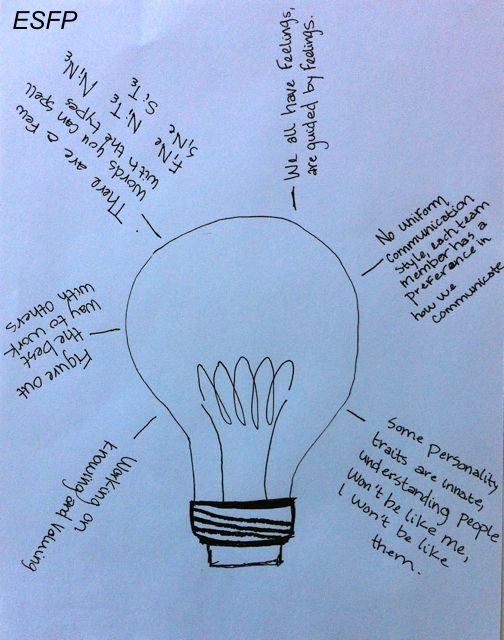 ESFP
There are a few
words you can spell
with the types
FiNe NiTE NiNE
SiNe SiTE
We all have Feelings,
are guided by feelings.
No uniform
communication
style, each team
member has a
preference in
how we
communicate
Some personality
traits are innate,
understanding people
won't be like me,
I won't be like
them.
Figure out
the best
way to work
with others
Working on
knowing and Valuing